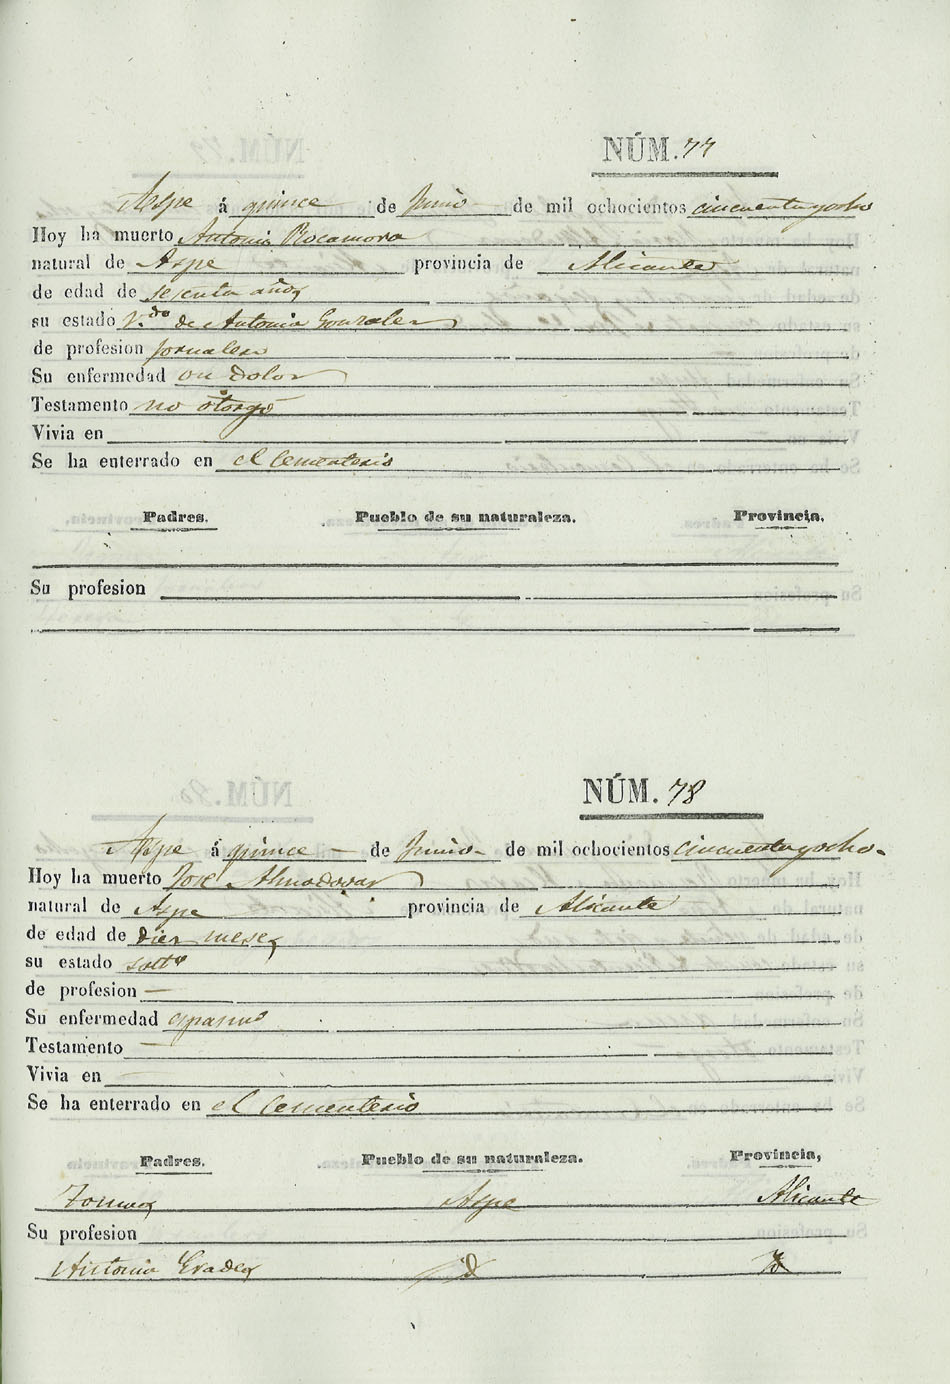 NÚM. 77
Aspe á quince de Junio de mil ochocientos cincuenta y ocho
Hoy ha muerto Antonio Rocamora
natural de Aspe provincia de Alicante
de edad de sesenta años
su estado V.do de Antonia Gonzales
de profesion jornalero
Su enfermedad un dolor
Testamento no otorgó
Vivia en
Se ha enterrado en el Cementerio
Padres. Pueblo de su naturaleza. Provincia.
Su profesion
NÚM. 78
Aspe á quince de Junio de mil ochocientos cincuenta y ocho
Hoy ha muerto José Almodovar
natural de Aspe provincia de Alicante
de edad de diez meses
su estado solto
de profesion —
Su enfermedad espasmo
Testamento —
Vivia en
Se ha enterrado en el Cementerio
Padres. Pueblo de su naturaleza. Provincia,
Tomas Aspe Alicante
Su profesion
Antonia Erades id id